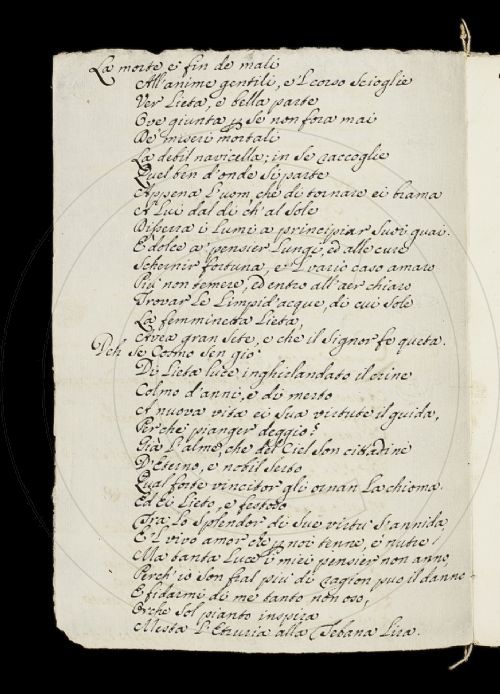 La morte e' fin de mali
All'anime gentili, e 'l corso scioglie
Ver lieta, e bella parte
Ove giunta se non fora mai
De' miseri mortali
La debil navicella; in se raccoglie
Quel ben d'onde si parte
Appena l'uom, che di tornare ei brama
A lui dal dì ch'al sole
Disserra i lumi a principiar suoi guai.
E dolce a' pensier lungi, ed alle cure
Schernir fortuna, e 'l vario caso amaro
Più non temere, ed entro all'aer chiaro
Trovar le limpid'acque, di cui sole
La femminetta lieta,
Avea gran sete, e che il Signor fe queta.
Deh se Cosmo sen gio
Di lieta luce inghirlandato il crine
Colmo d'anni, e di merto
A nuova vita ei sua virtute il guida,
Perche pianger deggio?
Già l'alme, che del Ciel son cittadine
D'Eterno, e nobil serto
Qual forte vincitor gli ornan la chioma.
Ed Ei lieto, e festoso
Tra lo splendor di sue virtu s'annida
E 'l vivo amor che noi tenne, e nutre
Ma tanta luce i miei pensier non anno
Perch'io son fral piu di cagion puo il danno
E fidarmi di me tanto non oso,
Orche sol pianto inspira
Mesta l'Etruria alla Tebana Lira.